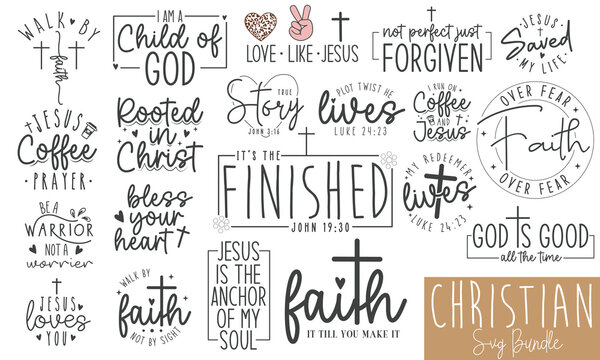 WALK BY
faith
I AM A
Child of
GOD
LOVE · LIKE · JESUS
not perfect just
FORGIVEN
JESUS
Saved
MY LIFE
JESUS
Coffee
PRAYER
Rooted
in
Christ
TRUE
Story
JOHN 3:16
PLOT TWIST HE
lives
LUKE 24:23
I RUN ON
Coffee
AND
Jesus
OVER FEAR
Faith
OVER FEAR
BE A
WARRIOR
NOT A
worrier
bless
your
heart
IT'S THE
FINISHED
JOHN 19:30
MY REDEEMER
lives
LUKE 24:23
GOD IS GOOD
all the time
JESUS
loves
YOU
WALK BY
faith
NOT BY SIGHT
JESUS
IS THE
ANCHOR
OF MY
SOUL
faith
IT TILL YOU MAKE IT
CHRISTIAN
Svg Bundle